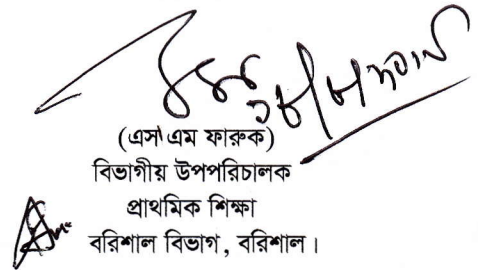 (এস এম ফারুক)
বিভাগীয় উপপরিচালক
প্রাথমিক শিক্ষা
বরিশাল বিভাগ, বরিশাল।